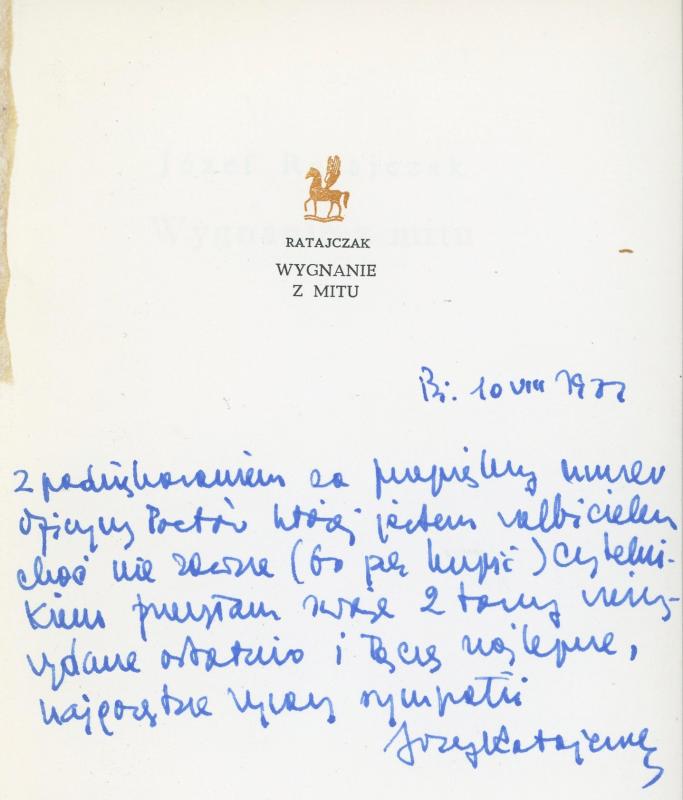 RATAJCZAK
WYGNANIE
Z MITU
10 VIII 1977
z podziękowaniem za przepiękny numer
Ojczyzny Poetów której jestem wielbicielem
choć nie zawsze (bo kupić) czytelni-
kiem przesyłam swoje 2 tomy wierszy
wydane ostatnio i łączę najlepsze,
najgorętsze wyrazy sympatii
Józef Ratajczak